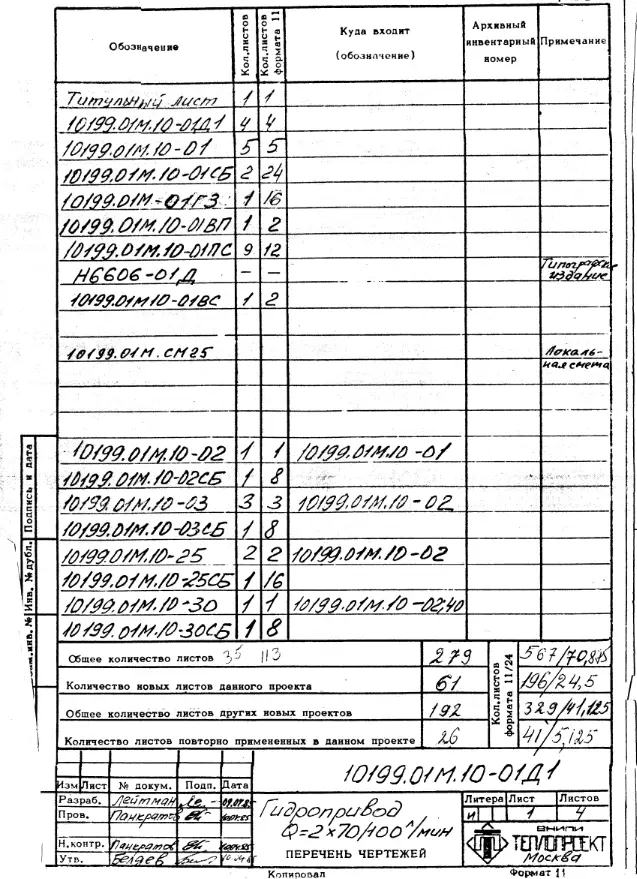 Обозначение Кол.листов Кол.листов формата 11 Куда входит (обозначение) Архивный инвентарный номер Примечание
Титульный лист 1 1
10199.01М.10-01Д1 4 4
10199.01М.10-01 5 5
10199.01М.10-01СБ 2 24
10199.01М-01ГЗ 1 16
10199.01М.10-01ВП 1 2
10199.01М.10-01ПС 9 12
Н6606-01Д — — Типографское издание
10199.01М10-01ВС 1 2
10199.01М.СМ25 Локаль-
ная смета
10199.01М.10-02 1 1 10199.01М.10-01
10199.01М.10-02СБ 1 8
10199.01М.10-03 3 3 10199.01М.10-02
10199.01М.10-03СБ 1 8
10199.01М.10-25 2 2 10199.01М.10-02
10199.01М.10-25СБ 1 16
10199.01М.10-30 1 1 10199.01М.10-02,40
10199.01М.10-30СБ 1 8
Подпись и дата
Инв. № дубл.
инв. №
Общее количество листов 35 113 279 Кол.листов формата 11/24 567/70,875
Количество новых листов данного проекта 61 196/24,5
Общее количество листов других новых проектов 192 329/41,125
Количество листов повторно примененных в данном проекте 26 41/5,125
10199.01М.10-01Д1
Изм Лист № докум. Подп. Дата
Разраб. Лейтман
Пров. Панкратов
Н.контр. Панкратов
Утв. Беляев
Гидропривод
Q=2х70/400 л/мин
ПЕРЕЧЕНЬ ЧЕРТЕЖЕЙ
Литера Лист Листов
И 1 4
ВНИПИ
ТЕПЛОПРОЕКТ
Москва
Копировал Формат 11